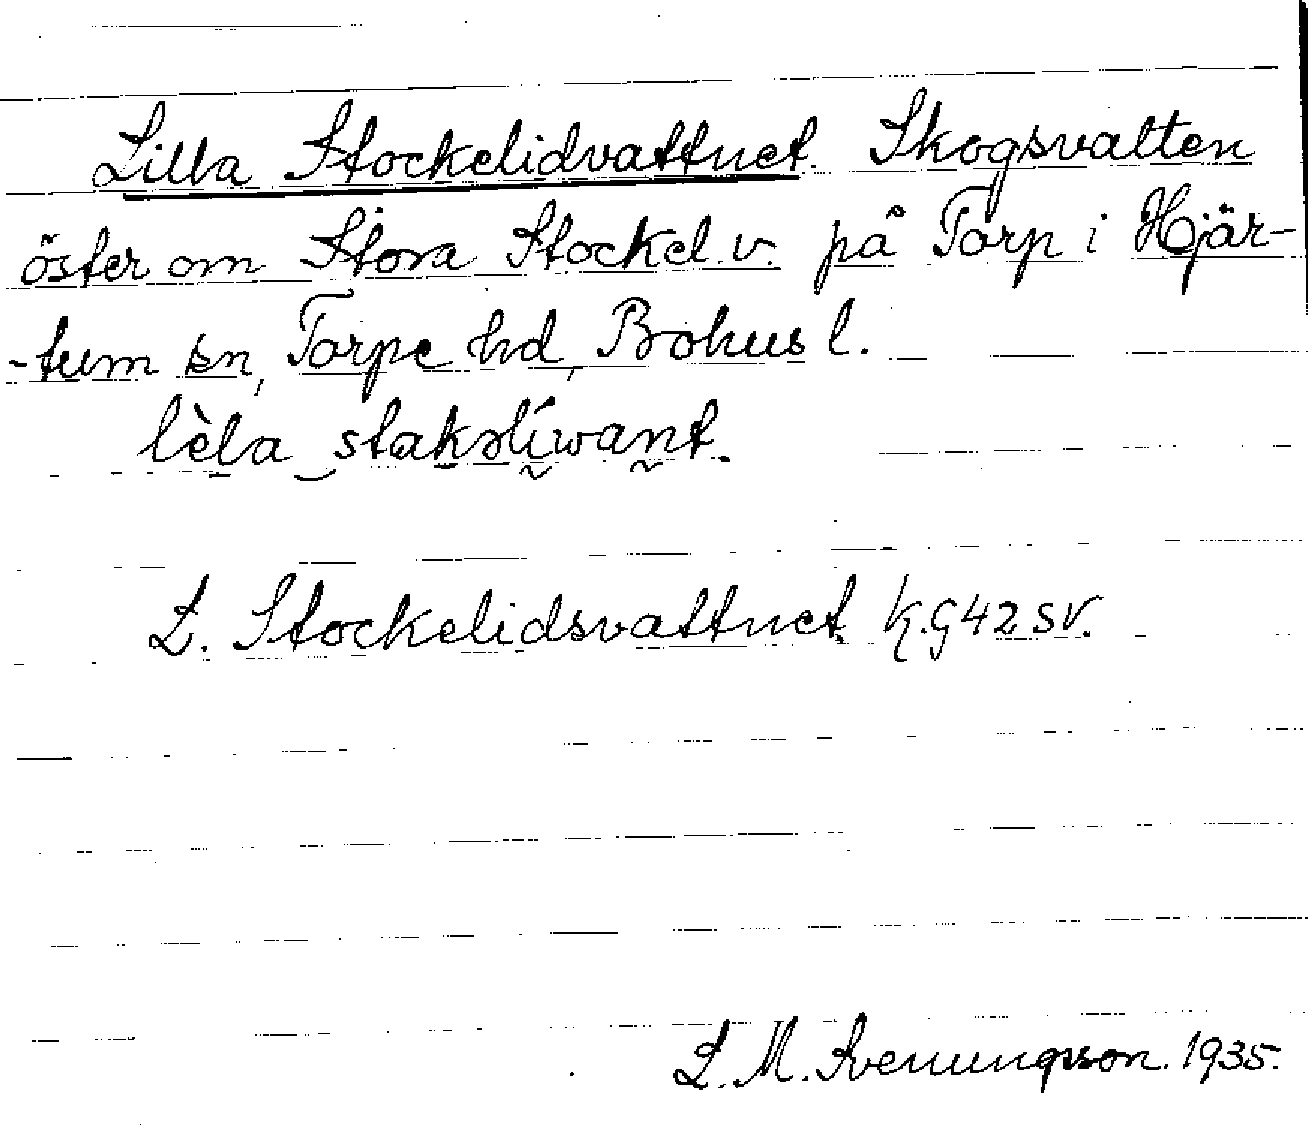 Lilla Stockelidvattnet. Skogsvatten
öster om Stora Stockel.v. på Torp i Hjär-
-tum sn, Torpe hd, Bohus l.
lèla stakəlíwant.
L. Stockelidsvattnet. K.G42SV.
L. M. Svenungsson. 1935.